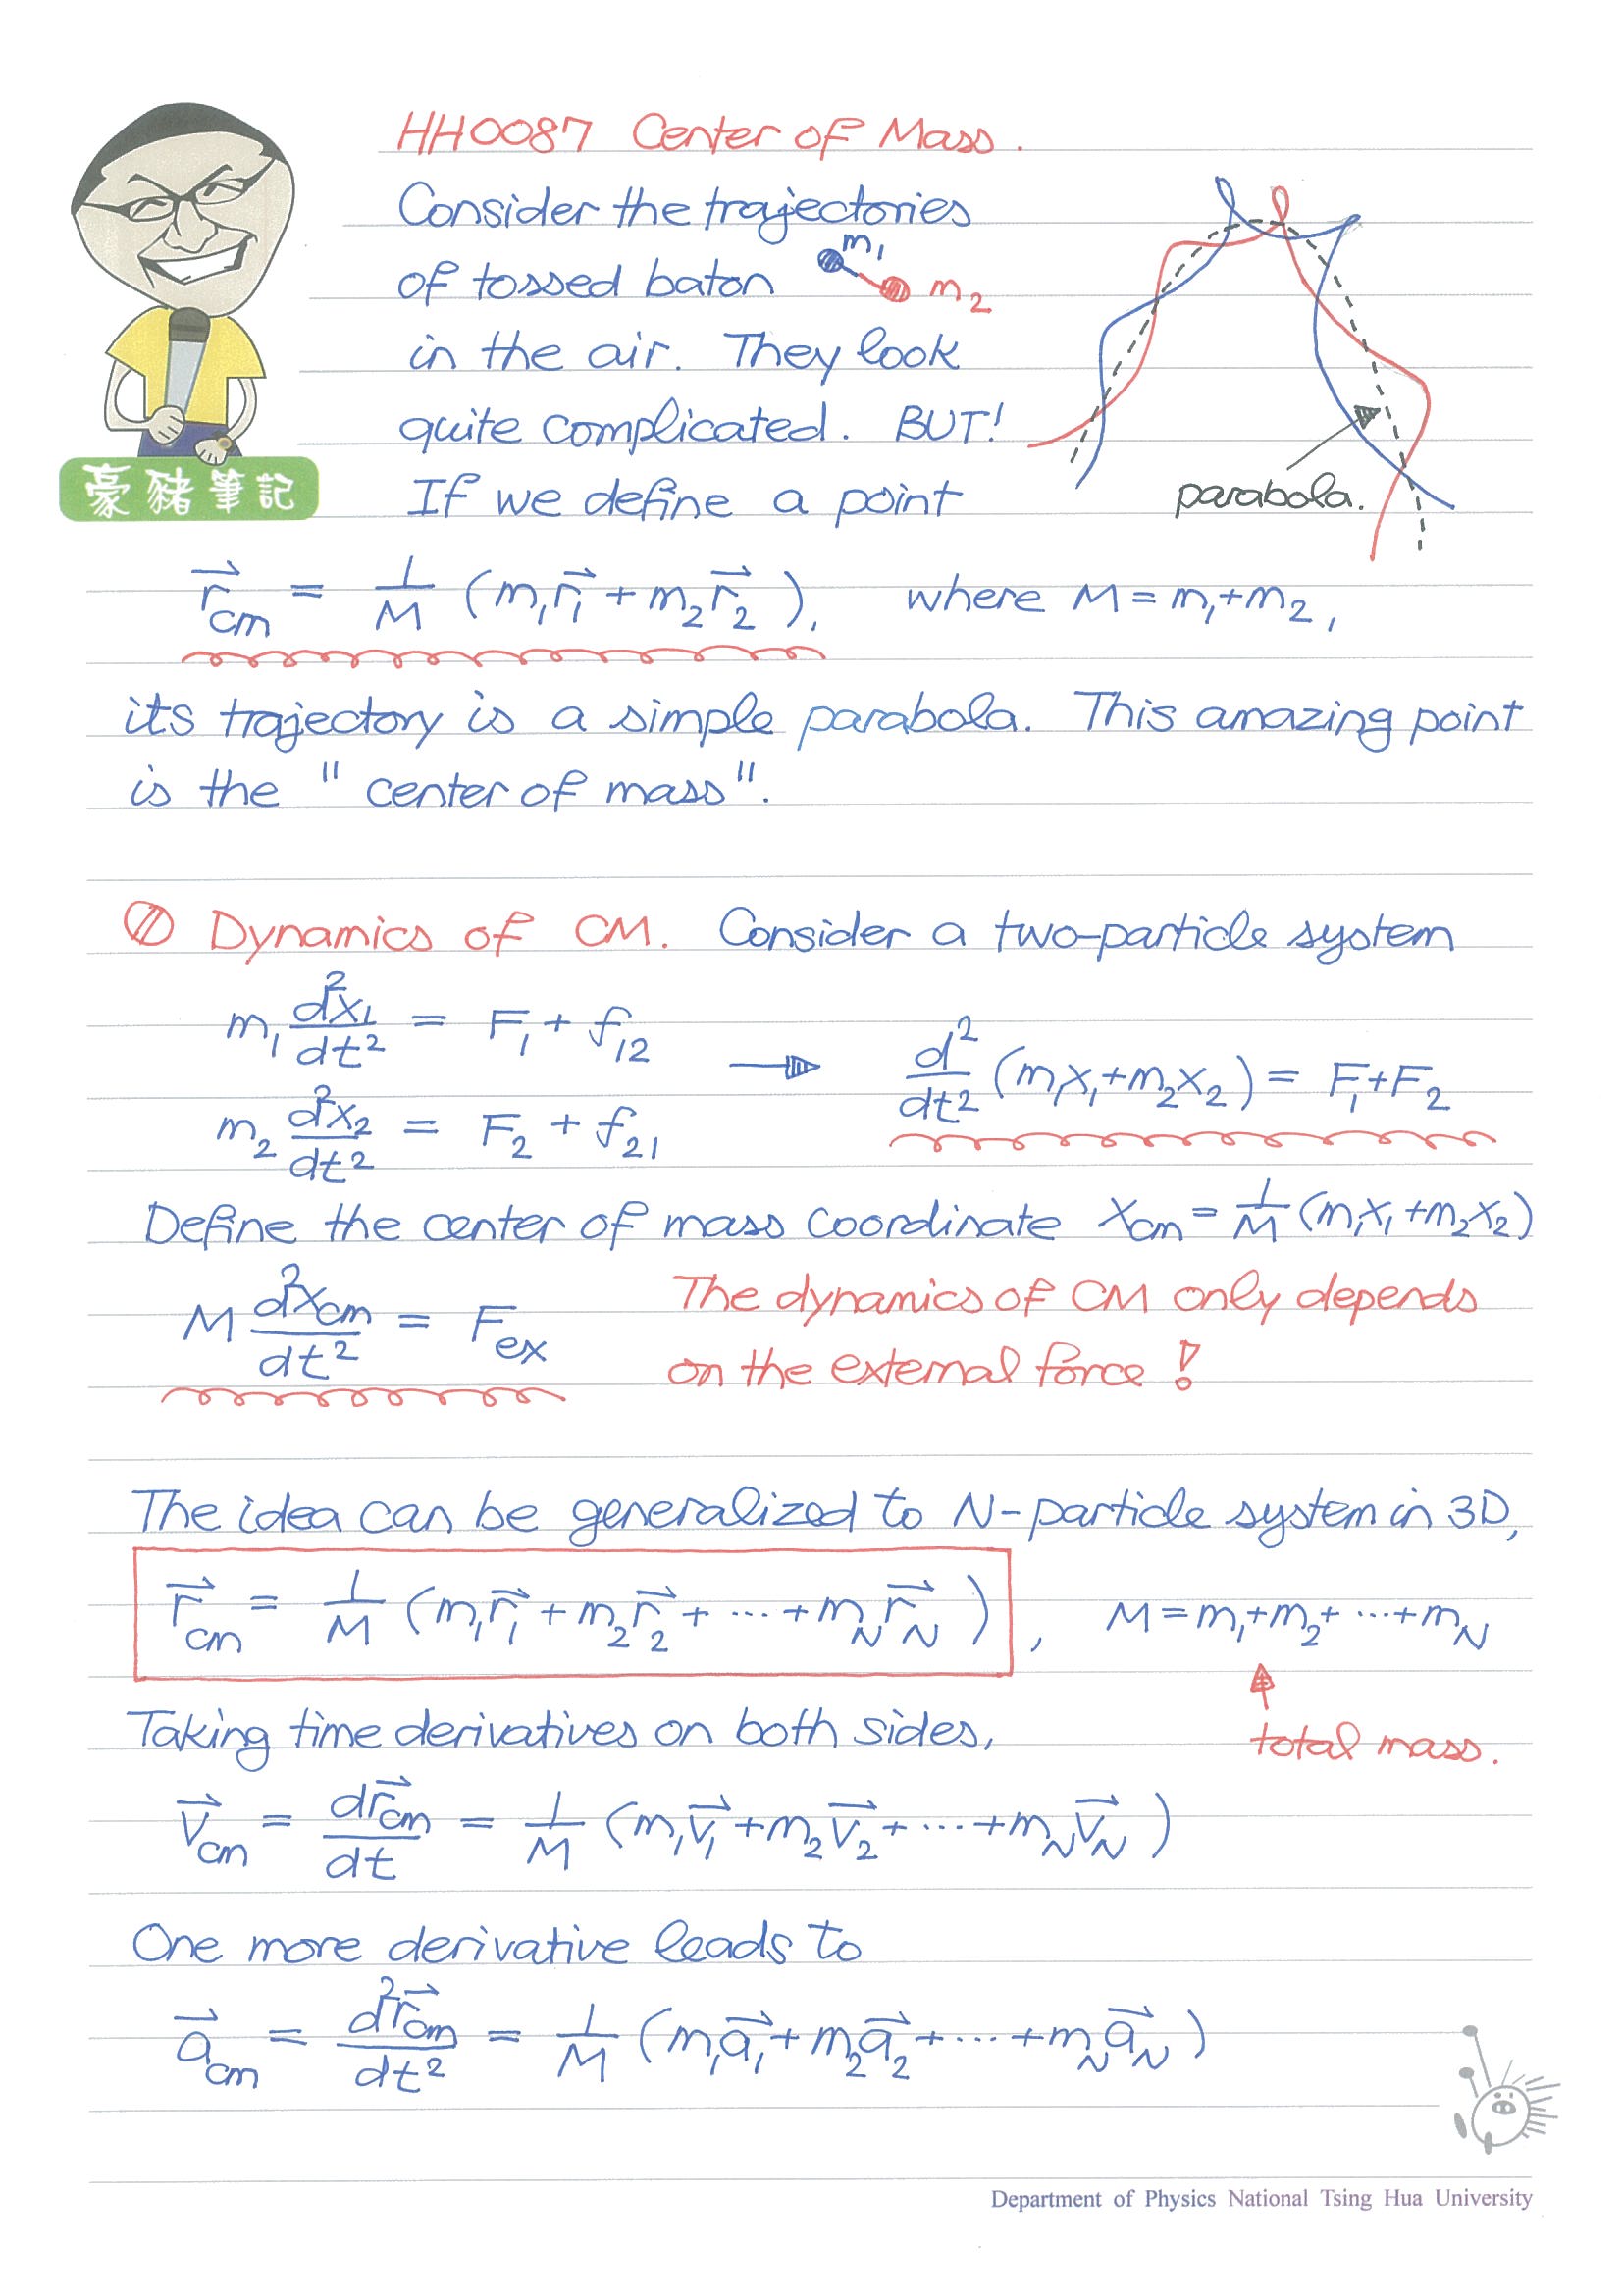 HH0087 Center of Mass.
Consider the trajectories
of tossed baton m₁ m₂
in the air. They look
quite complicated. BUT!
豪豬筆記
If we define a point
parabola.
r⃗cm = 1/M (m₁r⃗₁ + m₂r⃗₂), where M = m₁+m₂,
its trajectory is a simple parabola. This amazing point
is the "center of mass".
① Dynamics of CM. Consider a two-particle system
m₁ d²x₁/dt² = F₁ + f₁₂
m₂ d²x₂/dt² = F₂ + f₂₁
→ d²/dt² (m₁x₁+m₂x₂) = F₁+F₂
Define the center of mass coordinate Xcm = 1/M (m₁x₁+m₂x₂)
M d²xcm/dt² = Fex
The dynamics of CM only depends
on the external force!
The idea can be generalized to N-particle system in 3D,
r⃗cm = 1/M (m₁r⃗₁ + m₂r⃗₂ + ... + mNr⃗N), M = m₁+m₂+ ... +mN
total mass.
Taking time derivatives on both sides,
v⃗cm = dr⃗cm/dt = 1/M (m₁v⃗₁ + m₂v⃗₂ + ... + mNv⃗N)
One more derivative leads to
a⃗cm = d²r⃗cm/dt² = 1/M (m₁a⃗₁ + m₂a⃗₂ + ... + mNa⃗N)
Department of Physics National Tsing Hua University